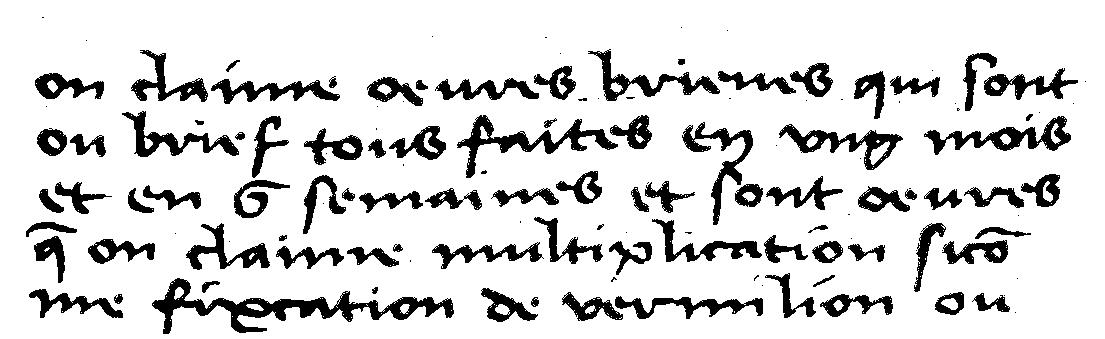 on claime oeuvres brieues qui sont
ou brief tous faites en vng mois
et en 6 semaines et sont oeuvres
q̄ on claime multiplication sicō
me fixcation de vermilion ou